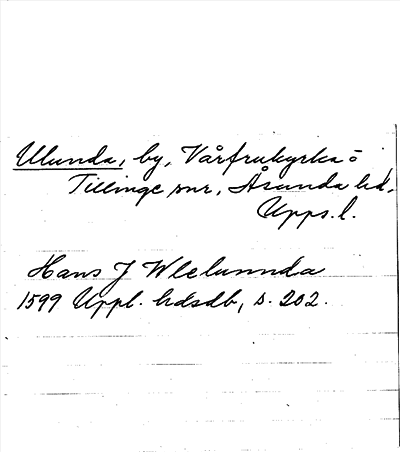 Ulunda, by, Vårfrukyrka o
Tillinge snr, Åsunda hd,
Upps. l.
Hans J Wlelunnda
1599 Uppl. hdsdb, s. 202.